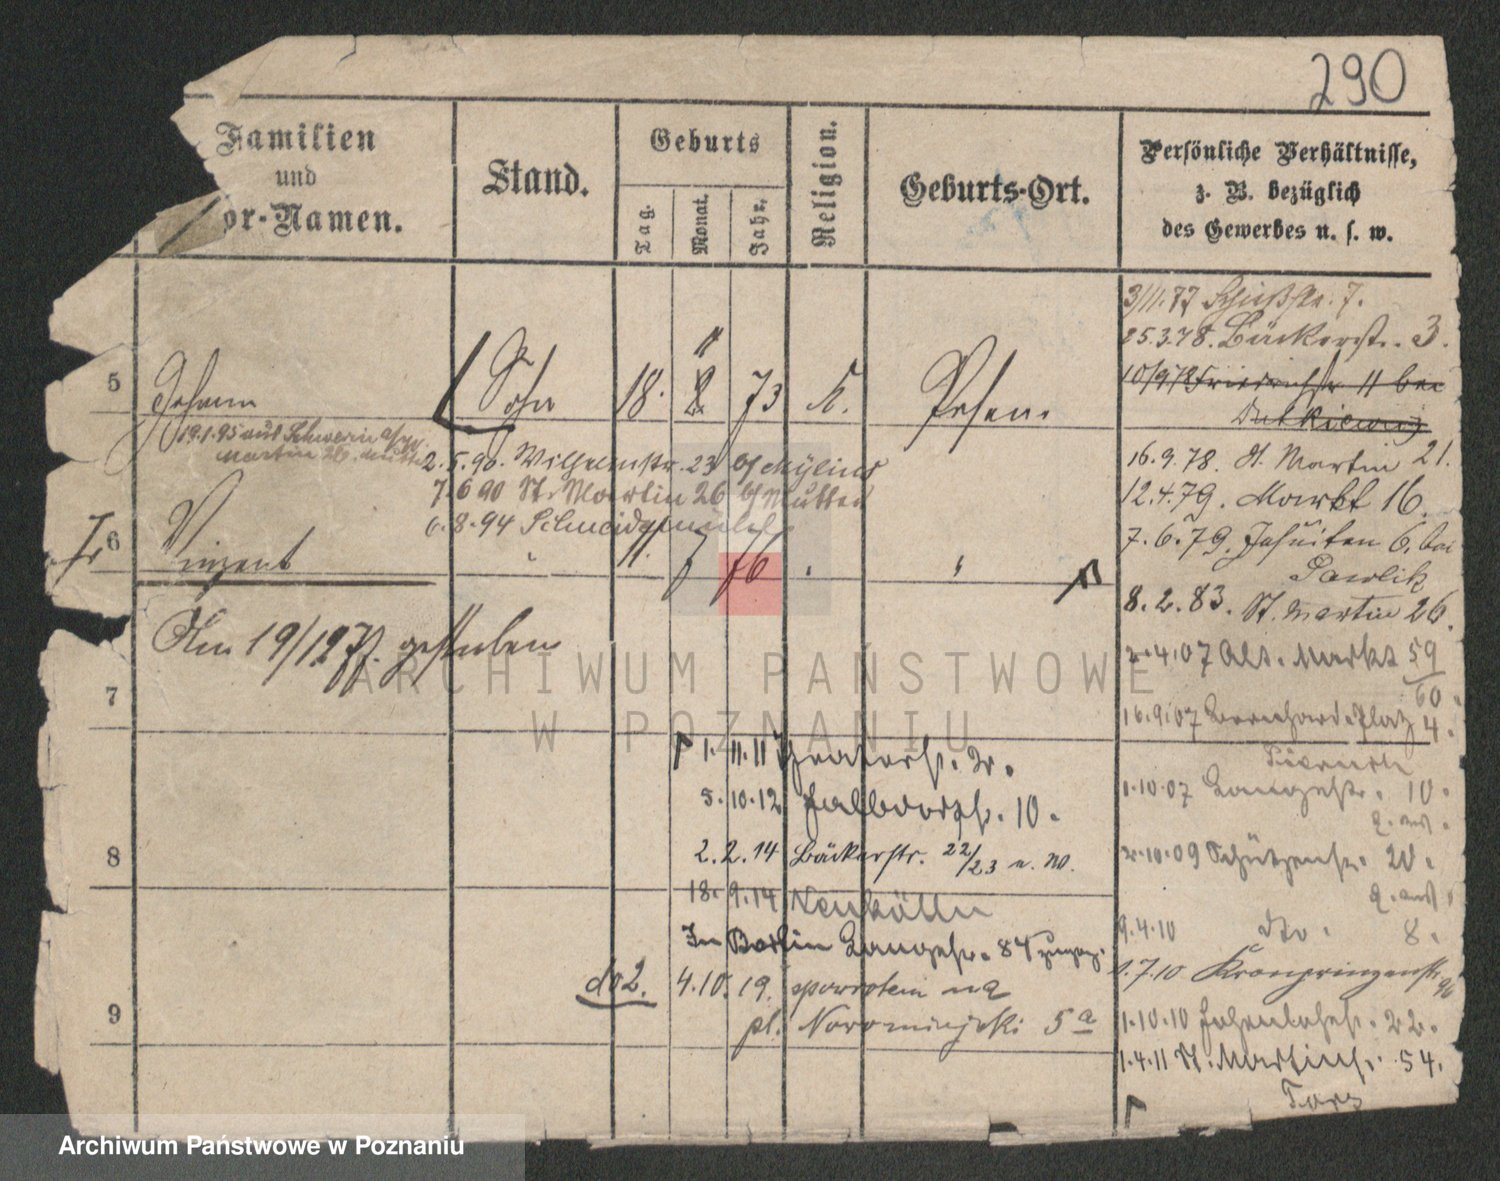 290
Familien
und
or-Namen.
Stand.
Geburts
Tag.
Monat.
Jahr.
Religion.
Geburts-Ort.
Persönliche Verhältnisse,
z. B. bezüglich
des Gewerbes u. s. w.
3/11.77 Schießstr. 7.
25.3.78. Bäckerstr. 3.
10/9 78 Friedrichstr 11 bei
Dutkiewicz
16.9.78. St. Martin 21.
12.4.79. Markt 16.
7.6.79. Jesuiten 6. bei
Pawlik
8.2.83. St. Martin 26.
2.4.07 Alt. Markt 59
60
16.9.07 Bernhard. Platz 4.
1.10.07 Langestr. 10.
2.10.09 Schützenstr. 20.
9.4.10 dto. 8.
1.7.10 Kronprinzenstr
1.10.10 Hohenlohestr. 22.
1.4.11 St. Martinstr. 54.
5 Johann Sohn 18. 11 73 K. Posen.
19.1.95 aus Schwerin
Martin 26. Mutter
2.5.90. Wilhelmstr. 23 bei Mylius
7.6 90 St. Martin 26 bei Mutter
6.8.94 Schneidemühl
6 Vinzent " 11. 7 76 " "
Am 19/12 77. gestorben
7
1.11.11 Theaterstr. 2.
5.10.12 Halbdorfstr. 10.
8 2.2.14 Bäckerstr. 22/23 u. W.
18.9.14 Neukölln
In Berlin Langestr. 84
do 2. 4.10.19. spowrotem na
9 pl. Nowomiejski 5a
ARCHIWUM PAŃSTWOWE
W POZNANIU
Archiwum Państwowe w Poznaniu